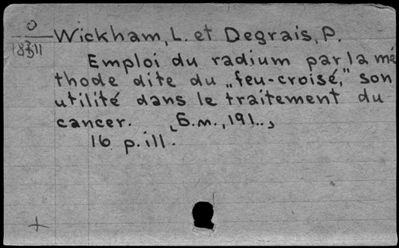 O
18311
Wickham, L. et Degrais, P.
Emploi du radium par la mé
thode dite du „feu-croisé," son
utilité dans le traitement du
cancer. [S.m., 191..,
16 p. ill.
+